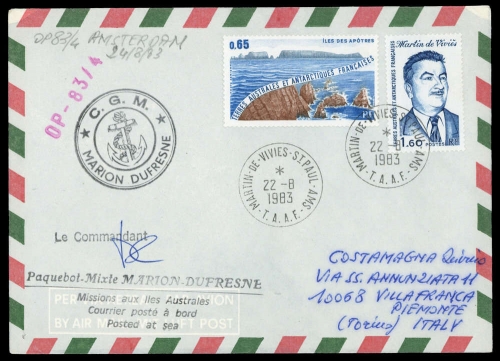 DP83/4 AMSTERDAM
24/8/83
OP-83/4
C.G.M.
MARION DUFRESNE
0.65
ÎLES DES APÔTRES
TERRES AUSTRALES ET ANTARCTIQUES FRANÇAISES
Martin de Viviès
TERRES AUSTRALES ET ANTARCTIQUES FRANÇAISES
1.60 POSTES RF
MARTIN-DE-VIVIES-ST PAUL-AMS
*
22-8
1983
-T.A.A.F.-
MARTIN-DE-VIVIES-ST PAUL-AMS
*
22-8
1983
-T.A.A.F.-
Le Commandant
Paquebot-Mixte MARION-DUFRESNE
Missions aux Iles Australes
Courrier posté à bord
Posted at sea
PAR AVION
BY AIR MAIL POST
COSTAMAGNA
VIA SS. ANNUNZIATA 11
10068 VILLAFRANCA
PIEMONTE
(Torino) ITALY